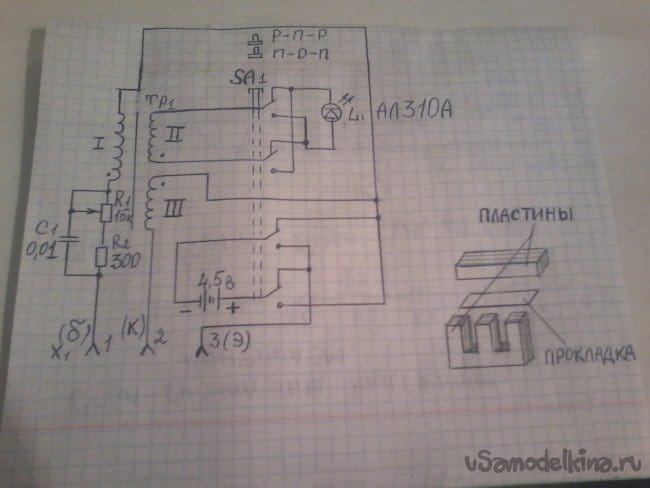 Р-П-Р
П-Р-П
SA1
Тр1
I
II
III
L1
АЛ310А
R1
15К
C1
0,01
R2
300
4,5в
- +
(б)
X1
1
(К)
2
3(Э)
ПЛАСТИНЫ
ПРОКЛАДКА
vSamodelkina.ru